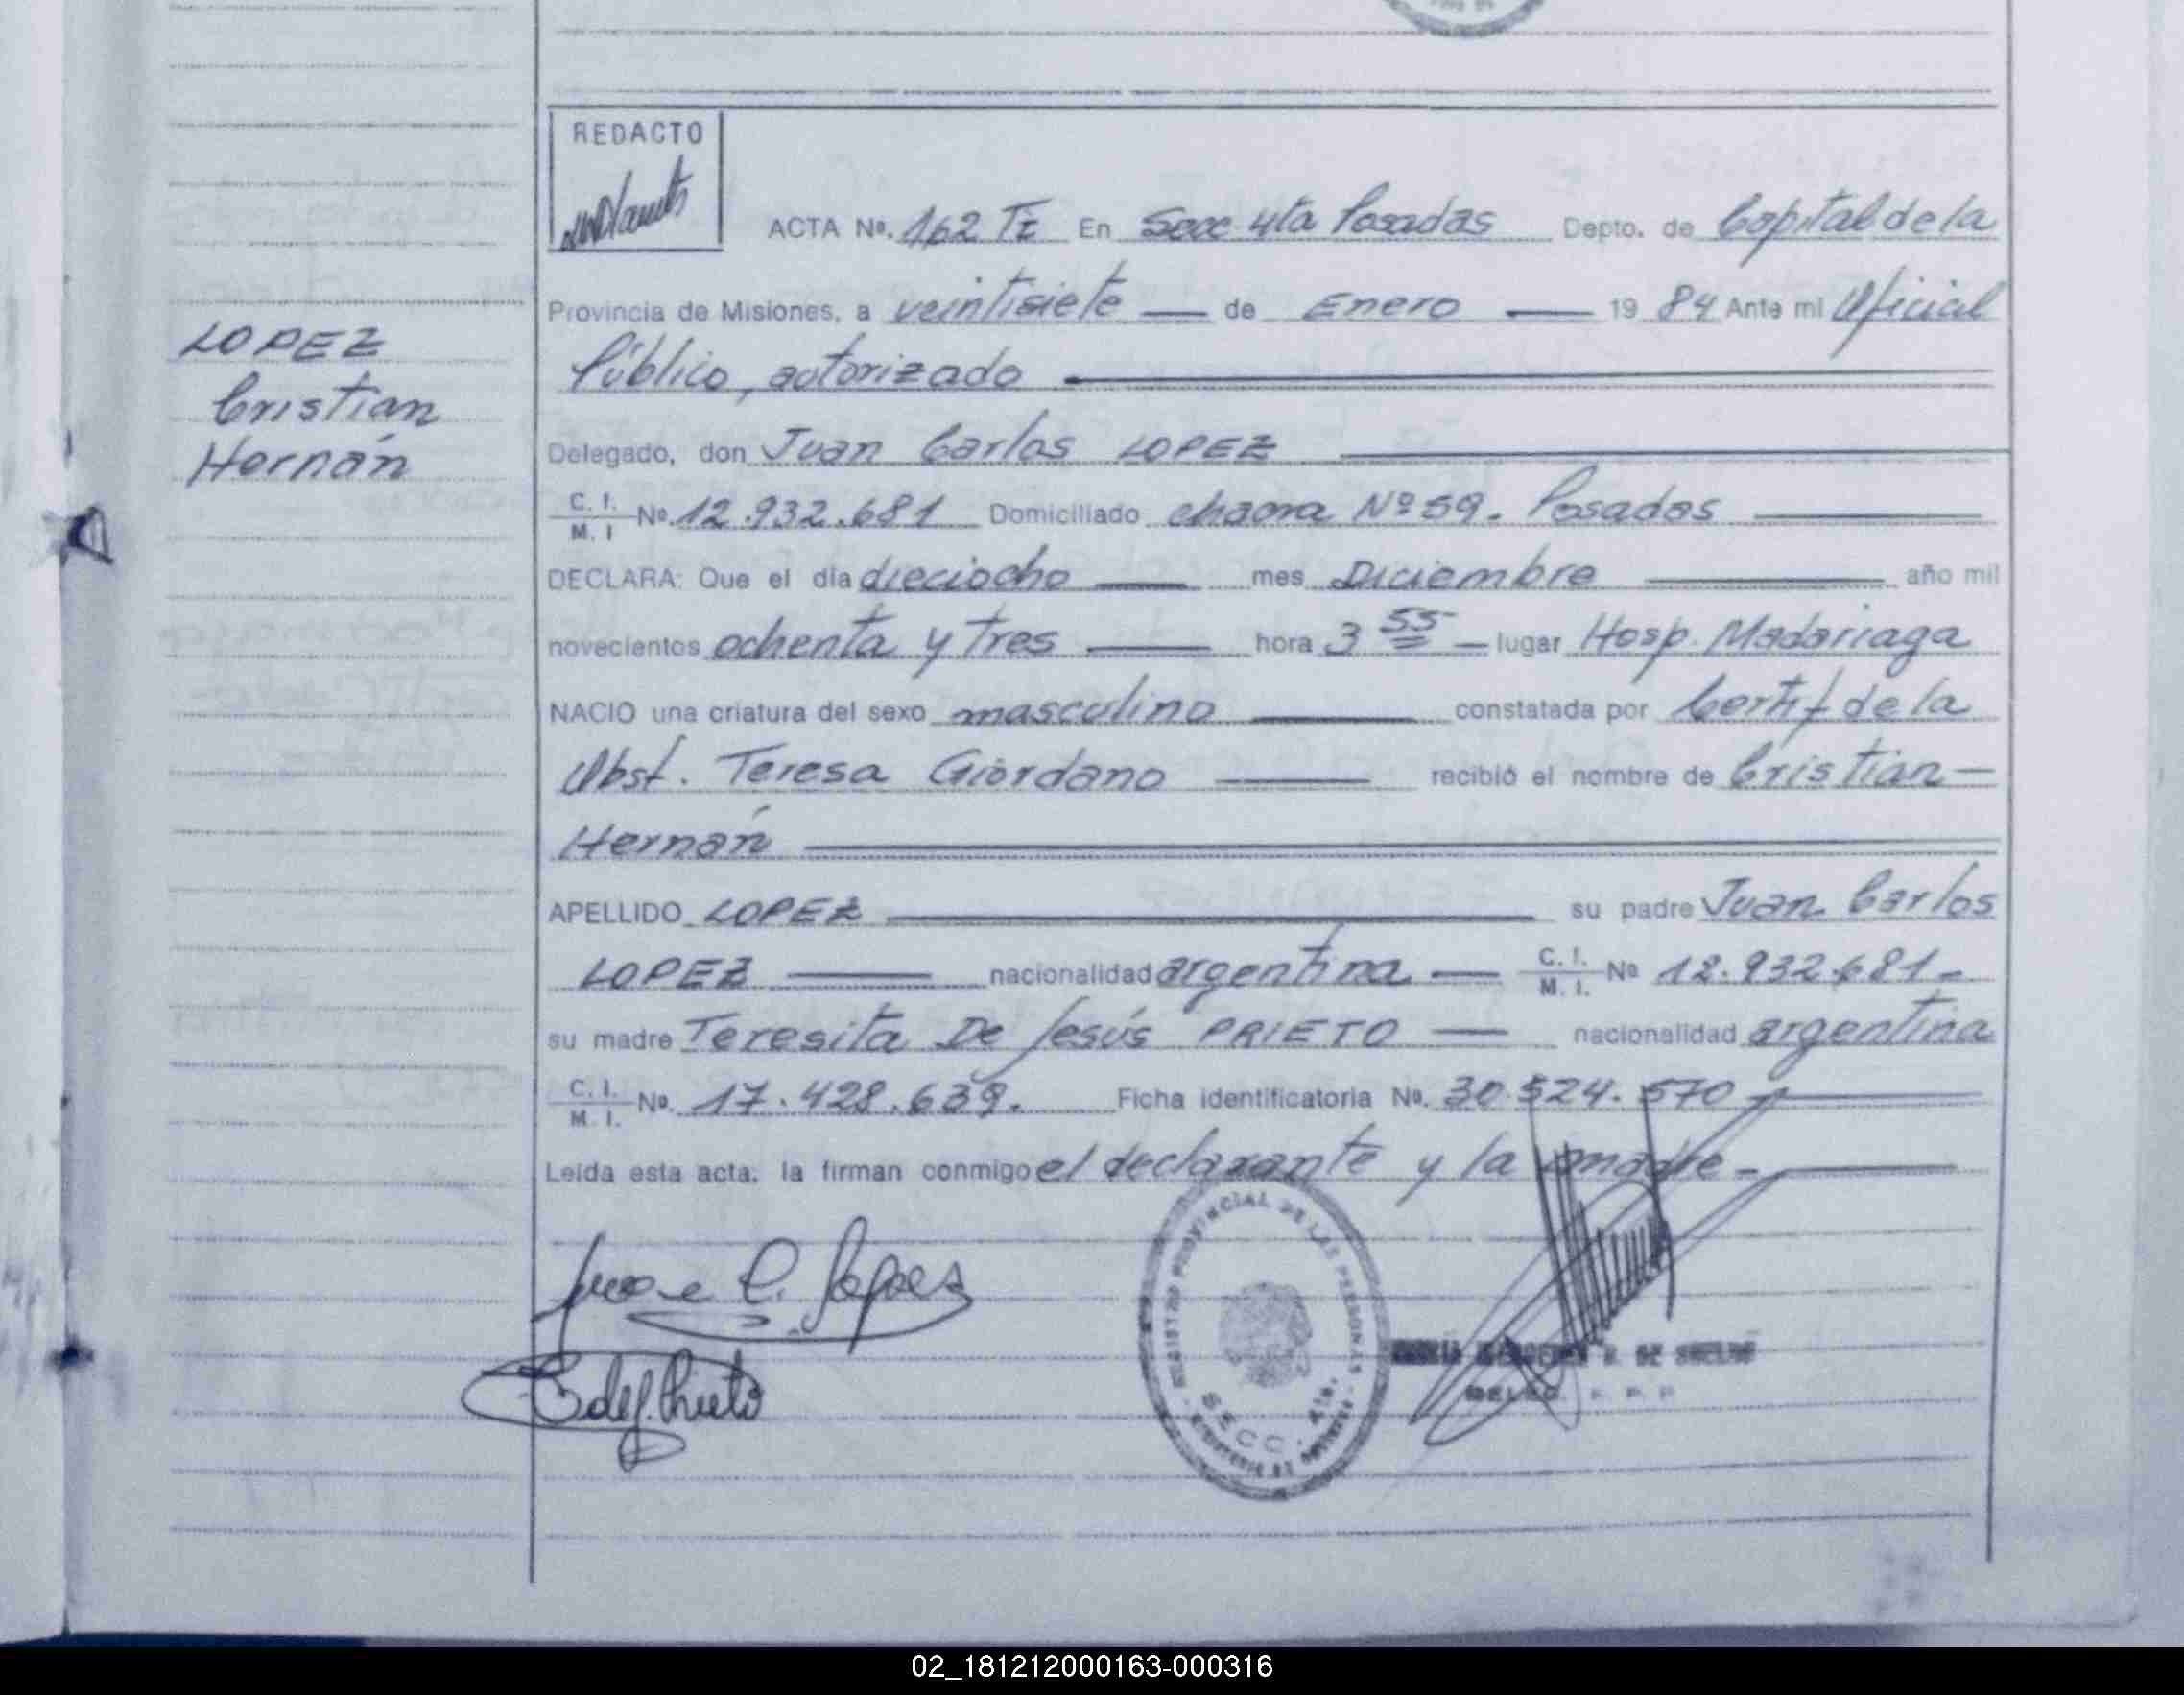 REDACTO
ACTA Nº. 162 TI En Secc 4ta Posadas Depto. de Capital de la
Provincia de Misiones, a veintisiete de Enero 19 84 Ante mi Oficial
Público, autorizado
LOPEZ
Cristian
Hernán
Delegado, don Juan Carlos LOPEZ
C. I.
M. I Nº. 12.932.681 Domiciliado chacra Nº 59. Posadas
DECLARA: Que el día dieciocho mes Diciembre año mil
novecientos ochenta y tres hora 3 55 lugar Hosp. Madariaga
NACIO una criatura del sexo masculino constatada por Certif de la
Obst. Teresa Giordano recibió el nombre de Cristian
Hernán
APELLIDO LOPEZ su padre Juan Carlos
LOPEZ nacionalidad argentina C. I.
M. I. Nº 12.932.681
su madre Teresita De Jesús PRIETO nacionalidad argentina
C. I.
M. I. Nº. 17.428.639. Ficha identificatoria No. 30.524.570
Leída esta acta: la firman conmigo el declarante y la madre
Juan C. Lopez
T. de J. Prieto
REGISTRO PROVINCIAL DE LAS PERSONAS
SECC. 4ta.
02_181212000163-000316